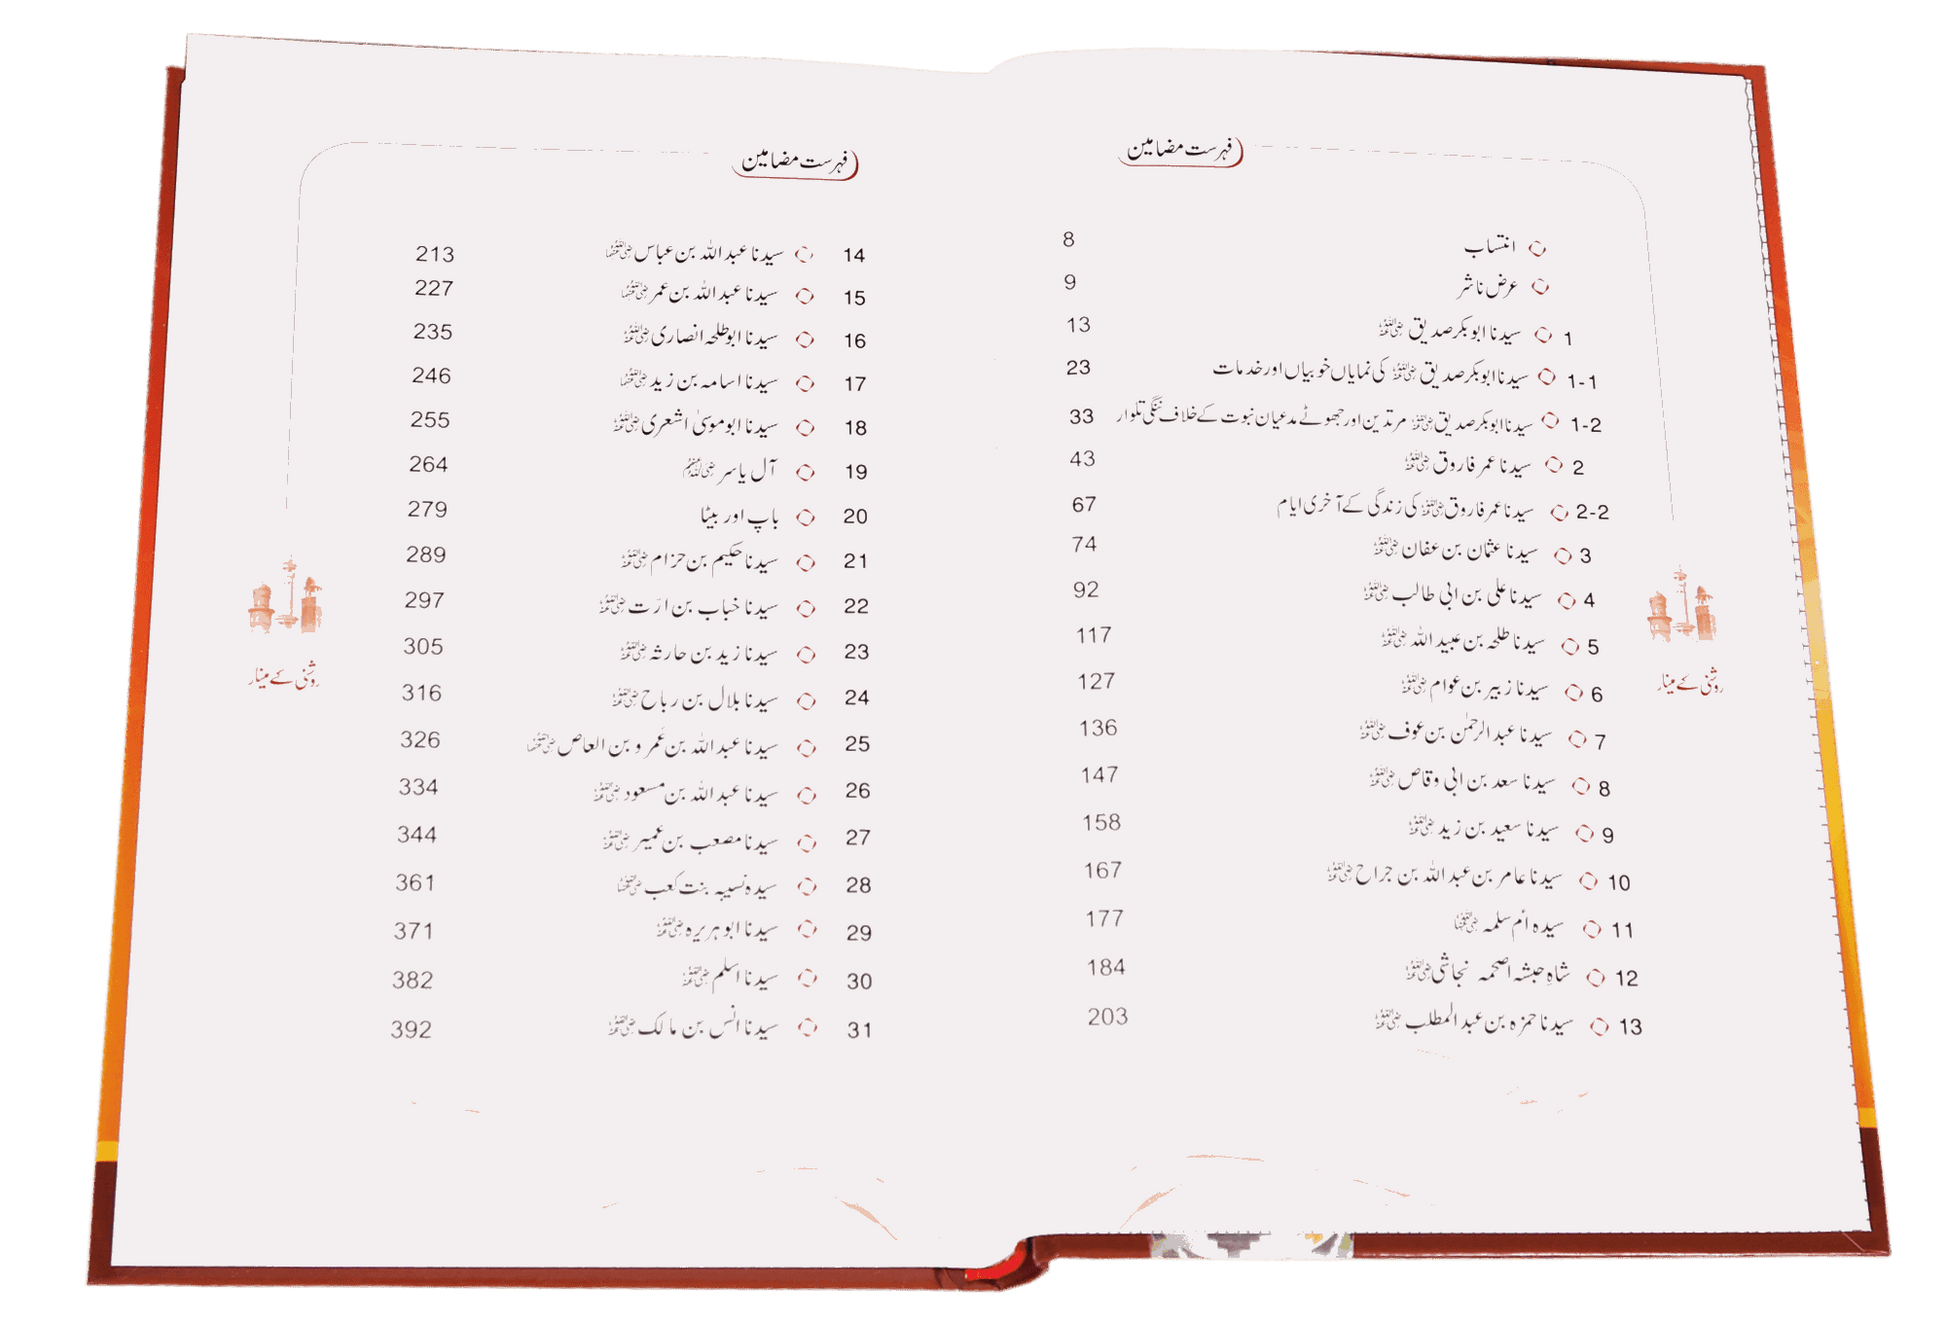 فہرست مضامین
انتساب 8
عرض ناشر 9
1 سیدنا ابوبکر صدیق رضی اللہ عنہ 13
1-1 سیدنا ابوبکر صدیق رضی اللہ عنہ کی نمایاں خوبیاں اور خدمات 23
1-2 سیدنا ابوبکر صدیق رضی اللہ عنہ مرتدین اور جھوٹے مدعیان نبوت کے خلاف ننگی تلوار 33
2 سیدنا عمر فاروق رضی اللہ عنہ 43
2-2 سیدنا عمر فاروق رضی اللہ عنہ کی زندگی کے آخری ایام 67
3 سیدنا عثمان بن عفان رضی اللہ عنہ 74
4 سیدنا علی بن ابی طالب رضی اللہ عنہ 92
5 سیدنا طلحہ بن عبید اللہ رضی اللہ عنہ 117
6 سیدنا زبیر بن عوام رضی اللہ عنہ 127
7 سیدنا عبد الرحمٰن بن عوف رضی اللہ عنہ 136
8 سیدنا سعد بن ابی وقاص رضی اللہ عنہ 147
9 سیدنا سعید بن زید رضی اللہ عنہ 158
10 سیدنا عامر بن عبد اللہ بن جراح رضی اللہ عنہ 167
11 سیدہ ام سلمہ رضی اللہ عنہا 177
12 شاہِ حبشہ اصحمہ نجاشی رضی اللہ عنہ 184
13 سیدنا حمزہ بن عبد المطلب رضی اللہ عنہ 203
روشنی کے مینار
فہرست مضامین
14 سیدنا عبد اللہ بن عباس رضی اللہ عنہما 213
15 سیدنا عبد اللہ بن عمر رضی اللہ عنہما 227
16 سیدنا ابوطلحہ انصاری رضی اللہ عنہ 235
17 سیدنا اسامہ بن زید رضی اللہ عنہما 246
18 سیدنا ابوموسیٰ اشعری رضی اللہ عنہ 255
19 آل یاسر رضی اللہ عنہم 264
20 باپ اور بیٹا 279
21 سیدنا حکیم بن حزام رضی اللہ عنہ 289
22 سیدنا خباب بن ارَت رضی اللہ عنہ 297
23 سیدنا زید بن حارثہ رضی اللہ عنہ 305
24 سیدنا بلال بن رباح رضی اللہ عنہ 316
25 سیدنا عبد اللہ بن عَمر و بن العاص رضی اللہ عنہما 326
26 سیدنا عبد اللہ بن مسعود رضی اللہ عنہ 334
27 سیدنا مصعب بن عمیر رضی اللہ عنہ 344
28 سیدہ نسیبہ بنت کعب رضی اللہ عنہا 361
29 سیدنا ابو ہریرہ رضی اللہ عنہ 371
30 سیدنا اسلم رضی اللہ عنہ 382
31 سیدنا انس بن مالک رضی اللہ عنہ 392
روشنی کے مینار